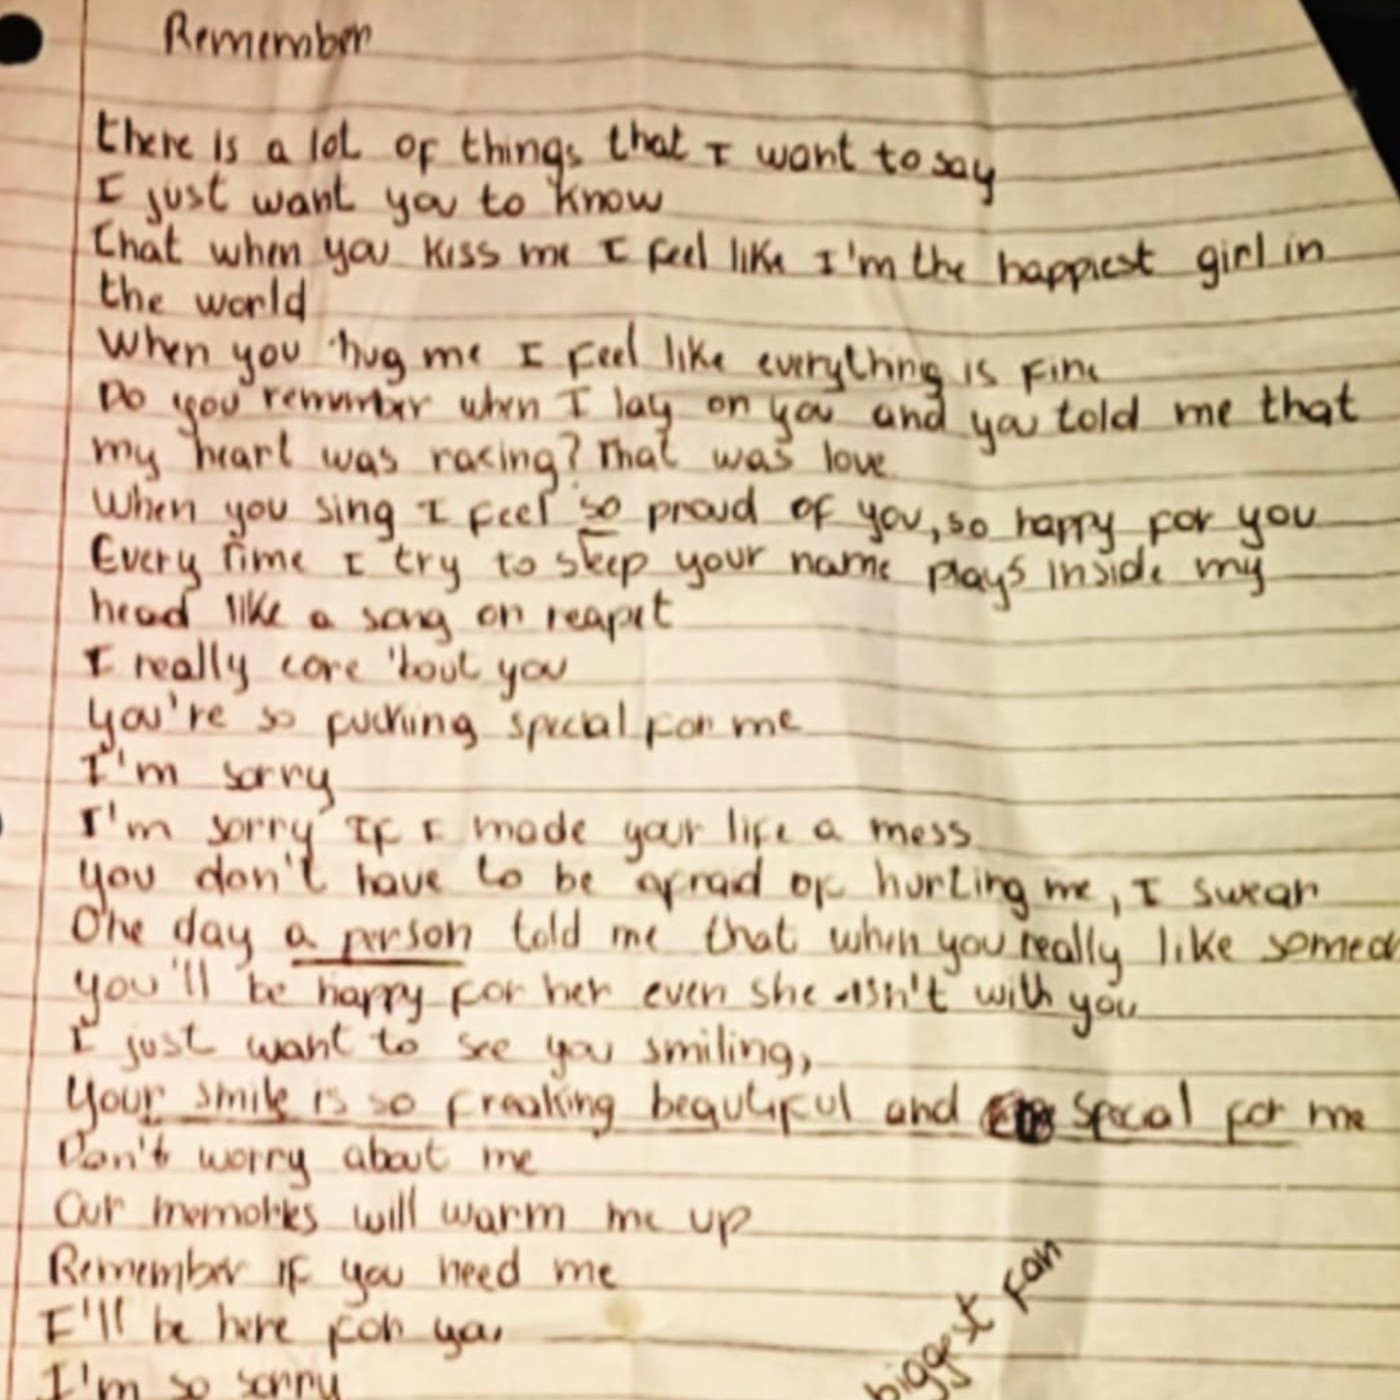 Remember
there is a lot of things that I want to say
I just want you to know
that when you kiss me I feel like I'm the happiest girl in
the world
When you hug me I feel like everything is fine
Do you remember when I lay on you and you told me that
my heart was racing? That was love
When you sing I feel so proud of you, so happy for you
Every time I try to sleep your name plays inside my
head like a song on reapet
I really care 'bout you
you're so fucking special for me
I'm sorry
I'm sorry If I made your life a mess
you don't have to be afraid of hurting me, I swear
One day a person told me that when you really like
you'll be happy for her even she isn't with you
I just want to see you smiling,
your smile is so freaking beautiful and special for me
Don't worry about me
Our memories will warm me up
Remember if you need me
I'll be here for you
I'm so sorry
biggest fan